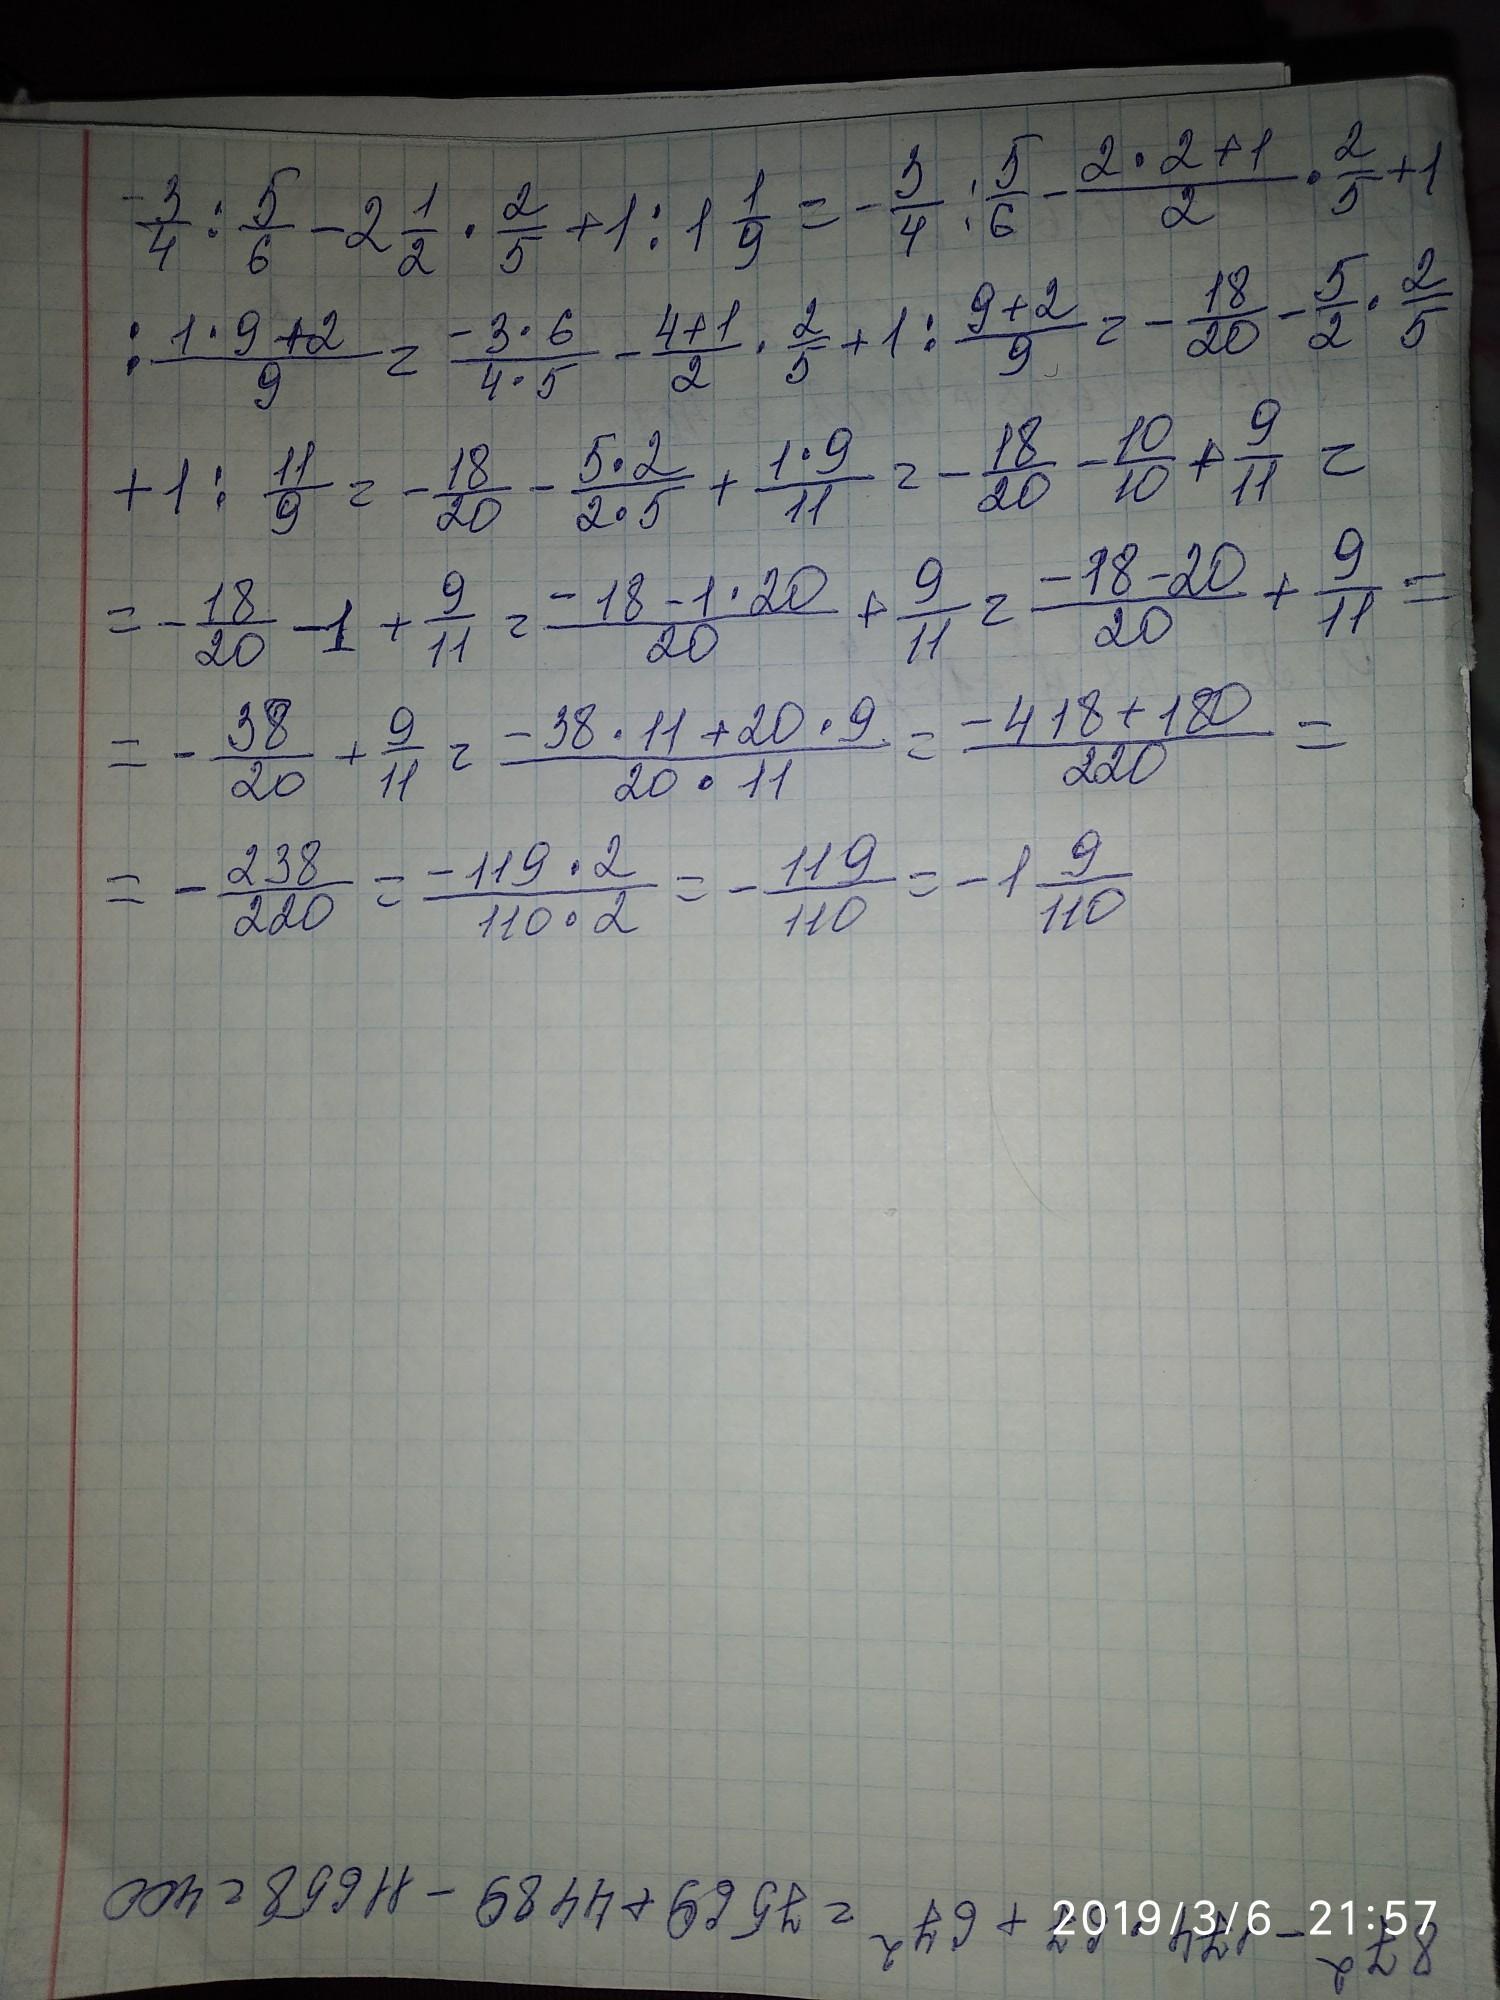 -3/4 : 5/6 - 2 1/2 · 2/5 + 1 : 1 1/9 = - 3/4 : 5/6 - (2·2+1)/2 · 2/5 + 1
: (1·9+2)/9 = (-3·6)/(4·5) - (4+1)/2 · 2/5 + 1 : (9+2)/9 = - 18/20 - 5/2 · 2/5
+ 1 : 11/9 = - 18/20 - (5·2)/(2·5) + (1·9)/11 = - 18/20 - 10/10 + 9/11 =
= - 18/20 - 1 + 9/11 = (-18-1·20)/20 + 9/11 = (-18-20)/20 + 9/11 =
= - 38/20 + 9/11 = (-38·11+20·9)/(20·11) = (-418+180)/220 =
= - 238/220 = (-119·2)/(110·2) = - 119/110 = - 1 9/110
87² - 174 · 67 + 67² = 7569 + 4489 - 11658 = 400
2019/3/6 21:57